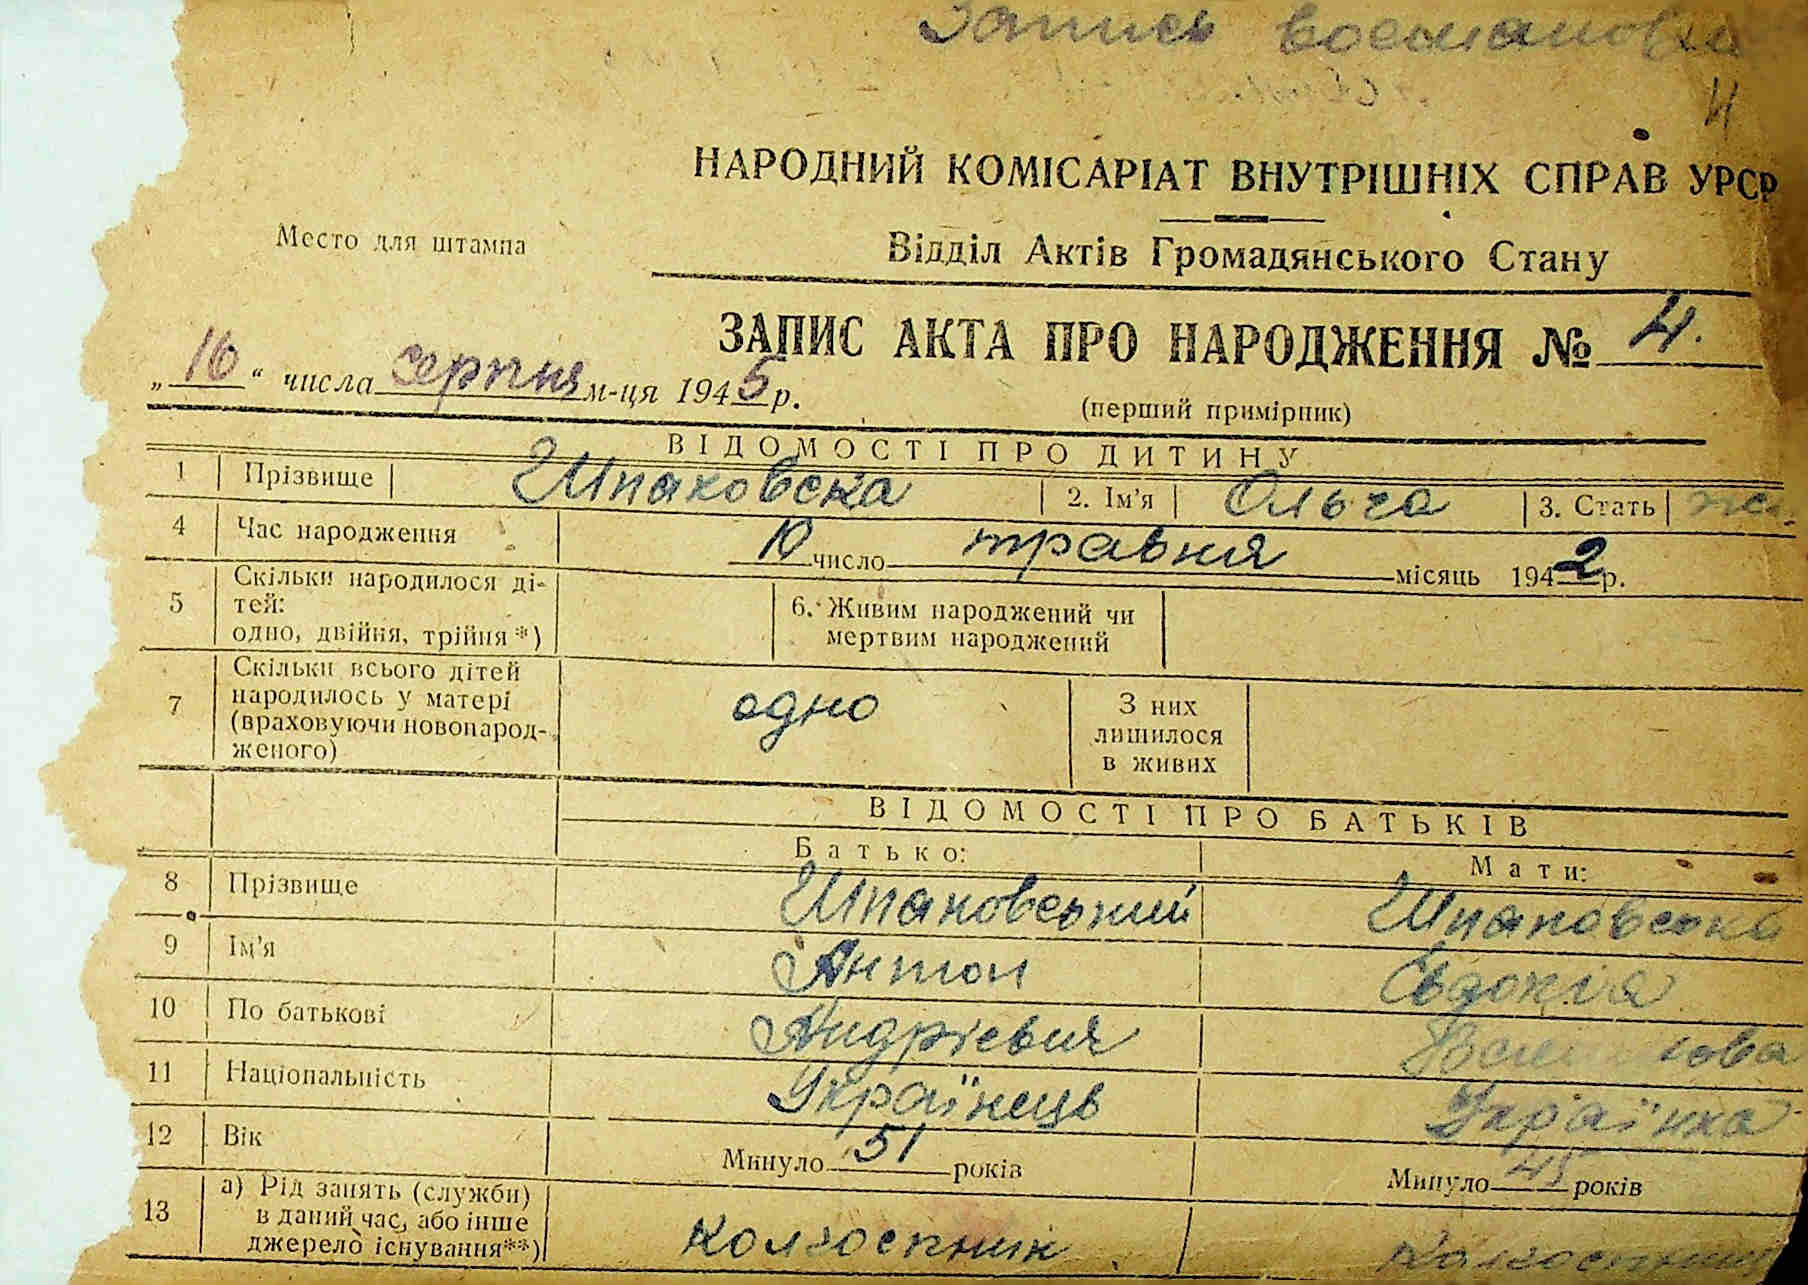 Запись
4
НАРОДНИЙ КОМІСАРІАТ ВНУТРІШНІХ СПРАВ УРСР
Место для штампа
Відділ Актів Громадянського Стану
ЗАПИС АКТА ПРО НАРОДЖЕННЯ № 4.
„16“ числа серпня м-ця 1945 р.
(перший примірник)
ВІДОМОСТІ ПРО ДИТИНУ
1 Прізвище Шпаковска 2. Ім'я Ольга 3. Стать жі.
4 Час народження 10 число травня місяць 1942 р.
5 Скільки народилося ді-
тей:
одно, двійня, трійня*)
6. Живим народжений чи
мертвим народжений
7 Скільки всього дітей
народилось у матері
(враховуючи новонарод-
женого)
одно
З них
лишилося
в живих
ВІДОМОСТІ ПРО БАТЬКІВ
Батько: Мати:
8 Прізвище Шпаковський Шпаковська
9 Ім'я Антон Євдокія
10 По батькові Андрієвич
11 Національність Українець Українка
12 Вік Минуло 51 років Минуло 45 років
13 а) Рід занять (служби)
в даний час, або інше
джерело існування**)
колгоспник колгоспниц